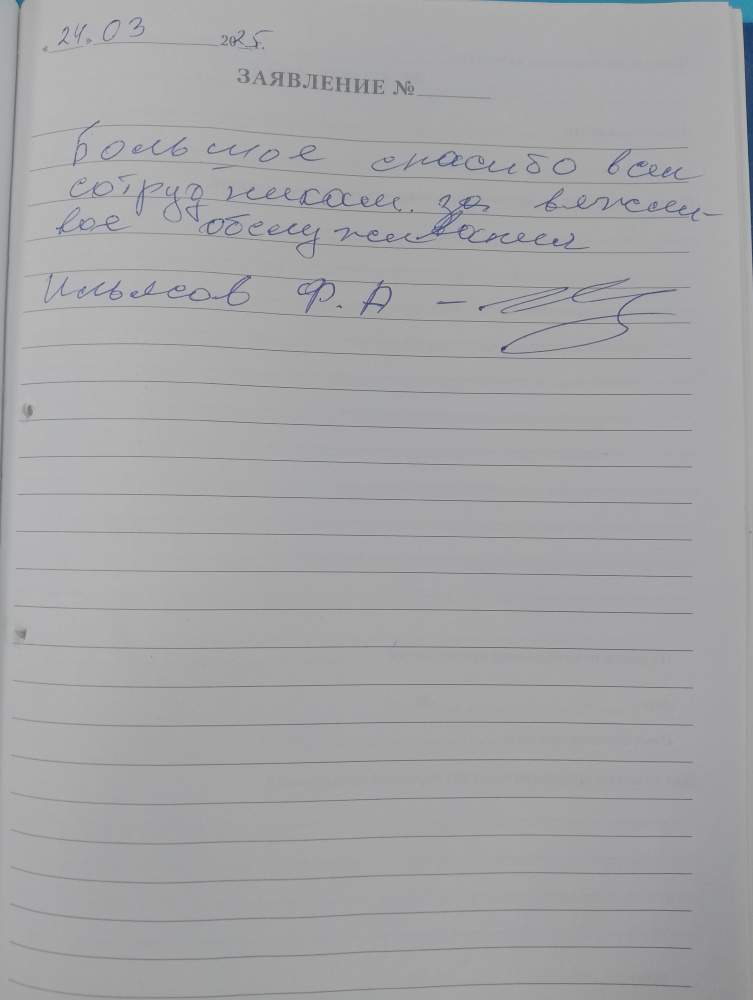 «24» 03 2025г.
ЗАЯВЛЕНИЕ №
Большое спасибо всем
сотрудникам за вяжли-
вое обслуживания
Ильясов Ф.А –